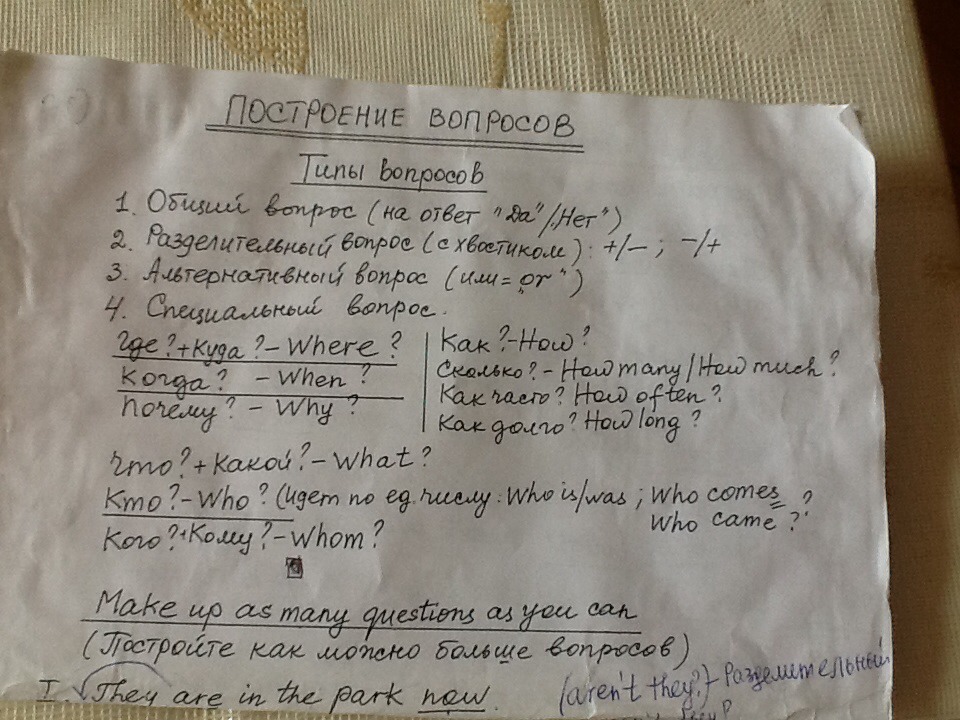 ПОСТРОЕНИЕ ВОПРОСОВ
Типы вопросов
1. Общий вопрос (на ответ "Да"/"Нет")
2. Разделительный вопрос (с хвостиком): +/–; –/+
3. Альтернативный вопрос (или = "or")
4. Специальный вопрос.
Где? + Куда? – Where?
Когда? – When?
Почему? – Why?
Как? – How?
Сколько? – How many / How much?
Как часто? How often?
Как долго? How long?
Что? + Какой? – What?
Кто? – Who? (идет по ед. числу: Who is/was; Who comes?
Who came?
Кого? + Кому? – Whom?
Make up as many questions as you can
(Постройте как можно больше вопросов)
I. They are in the park now. (aren't they?) – Разделительный